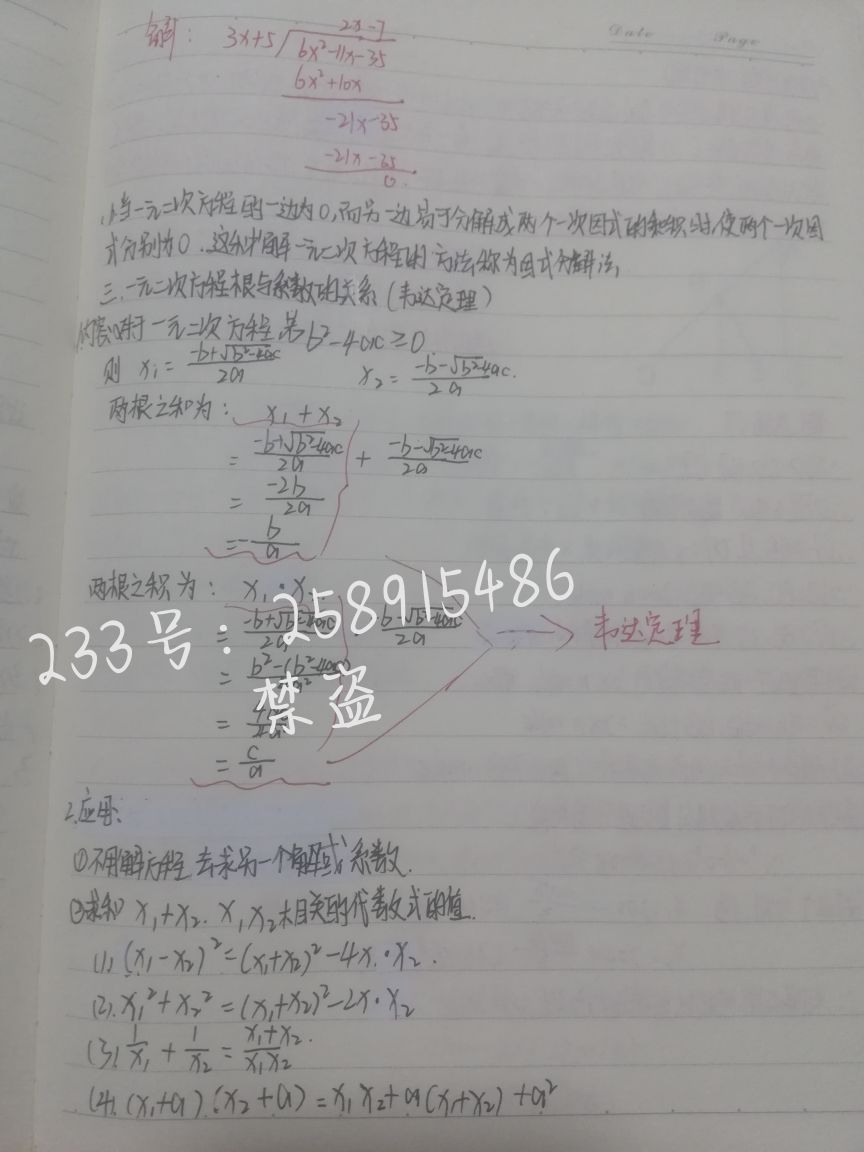 Date Page
3x+5 2x-7
6x²-11x-35
6x²+10x
-21x-35
-21x-35
0.
当一元二次方程的一边为0,而另一边易于分解成两个一次因式的乘积时,使两个一次因
式分别为0.这种解一元二次方程的方法称为因式分解法,
三.一元二次方程根与系数的关系(韦达定理)
1.内容:对于一元二次方程 若b²-4ac≥0
则 x₁=(-b+√b²-4ac)/2a x₂=(-b-√b²-4ac)/2a.
两根之和为: x₁+x₂
=(-b+√b²-4ac)/2a + (-b-√b²-4ac)/2a
=-2b/2a
=-b/a
两根之积为: x₁·x
258915486
233号:
=(-b+√b²-4ac)/2a · b-√b²-4ac/2a
韦达定理
=b²-(b²-4ac)
禁盗
=
=c/a
2.应用:
①不用解方程去求另一个解或系数.
②求和x₁+x₂.x₁x₂相关的代数式的值.
(1).(x₁-x₂)²=(x₁+x₂)²-4x₁·x₂.
(2).x₁²+x₂²=(x₁+x₂)²-2x·x₂
(3).1/x₁+1/x₂=(x₁+x₂)/x₁x₂.
(4).(x₁+a).(x₂+a)=x₁x₂+a(x₁+x₂)+a²